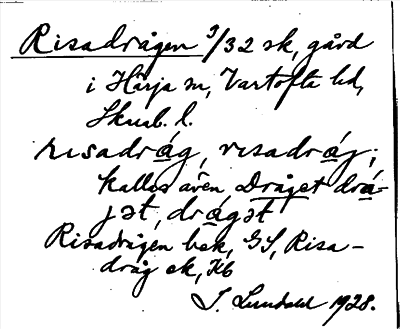 Risadrågen 9/32 sk, gård
i Härja sn, Vartofta hd,
Skarab. l.
risadrág, risadráj;
kallas även Dråget drá-
jət, drágət
Risadrågen bek, GS, Risa-
dråg ek, Hb
J. Lundahl 1928.